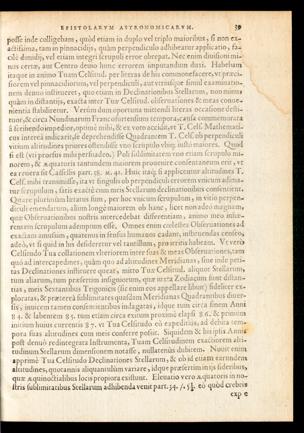 EPISTOLARVM ASTRONOMICARVM. 39
posse inde colligebam, quòd etiam in duplo vel triplo maioribus, si non ex-
actissima, tam in pinnacidijs, quàm perpendiculo adhibeatur applicatio, fa-
cilè dimidij, vel etiam integri scrupuli error obrepat. Nec enim
eius erràr, aut Centro demo hunc errorem imputandum duxi. Habebam
itaque in animo Tuam Celsitud. per literas de hijs commonefacere, vt præci-
siorem vel pinnacidiorum, vel perpendiculi, aut vtriusque simul examinatio-
nem demùm institueret, quo etiam in Declinationibus Stellarum, non minùs
quàm in distantijs, exacta inter Tuæ Celsitud. obseruationes & meas conue-
nientia stabiliretur. Verùm dum oportuna mittendi literas occasione desti-
tuor, & circa Nundinarum Francofurtensium tempora,
à scribendo impedior, optimè mihi, & ex voto accidit, et T. Cels. Mathemati-
cus intereà indicârit, se deprehendisse Quadrantem T. Cels. ob perpendiculi
vitium altitudines priores ostendisse vno scrupulo iustò maiores. Quod
si est (vti prorsus mihi persuadeo) Poli sublimitatem vno etiam scrupulo mi-
norem, & Æquatoris tantundem maiorem prouenire consentaneum erit, vt
ea reuera sit Cassellis part. 51. M. 41. Huic itaq; si applicentur altitudines T.
Cels. mihi transmissæ, ita vt singulis ob perpendiculi errorem vnicum adima-
tur scrupulum, satis exactè cum meis Stellarum declinationibus consentient.
Quare plurimùm lætatus sum, per hoc vnicum scrupulum, in vitio perpen-
diculi emendatum, aliam longè maiorem ob hanc, licet non adeò magnam,
quæ Obseruationibus nostris intercedebat differentiam, animo meo inhæ-
rentem scrupulum ademptum esse. Omnes enim cœlestes Obseruationes ad
exactam amussim, quatenus in sensus humanos cadant, instruendas censeo,
adeò, vt si quid in his desideretur vel tantillum, pro irritis habeam. Vt verò
Celsitudo Tua collationem vlteriorem inter suas & meas Obseruationes, tam
quò ad intercapedines, quàm quo ad altitudines Meridianas, sine mole peti-
tas Declinationes instituere queat, mitto Tuæ Celsitud. aliquot Stellarum,
tum aliarum, tum præsertim insigniorum, quæ iuxta Zodiacum sunt distan-
tias, meis Sextantibus Trigonicis (sic enim eos appellare libuit) fideliter ex-
ploratas, & prætereà sublimitates quasdam Meridianas Quadrantibus diuer-
sis, inuicem tamen consentientibus indagatas, idque tum circa finem Anni
84. & labentem 85. tum etiam circa exitum proximè elapsi 86. & primum
initium huius currentis 87. vt Tua Celsitudo eò expeditiùs, ad debita tem-
pora suas altitudines cum meis conferre possit. Siquidem & bis ipsis Annis
post denuò redintegrata Instrumenta, Tuam Celsitudinem exactiorem alti-
tudinum Stellarum dimensionem notasse, nullatenùs dubitem. Nouit enim
apprimè Tua Celsitudo Declinationes Stellarum, & ob id etiam earundem
altitudines, quotannis aliquantulùm variare, idque præsertim in ijs sideribus,
quæ Æquinoctialibus locis propiora existunt. Eleuatio verò Æquatoris in no-
stris sublimitatibus Stellarum adhibenda venit part. 34. /. 5¼. eò quòd crebris
exp e